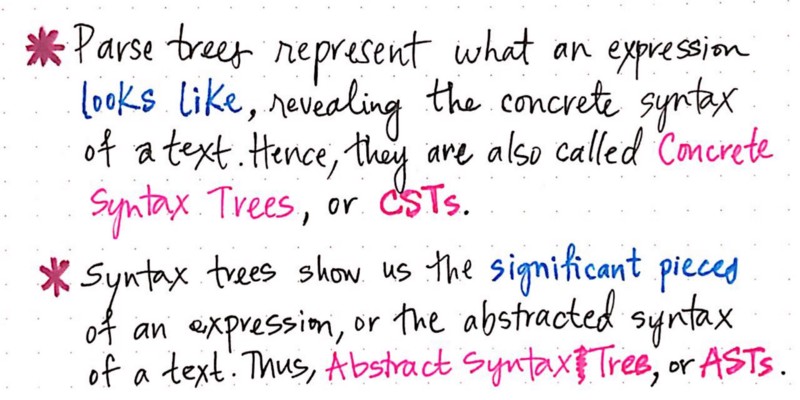 * Parse trees represent what an expression
looks like, revealing the concrete syntax
of a text. Hence, they are also called Concrete
Syntax Trees, or CSTs.
* Syntax trees show us the significant pieces
of an expression, or the abstracted syntax
of a text. Thus, Abstract Syntax Tree, or ASTs.